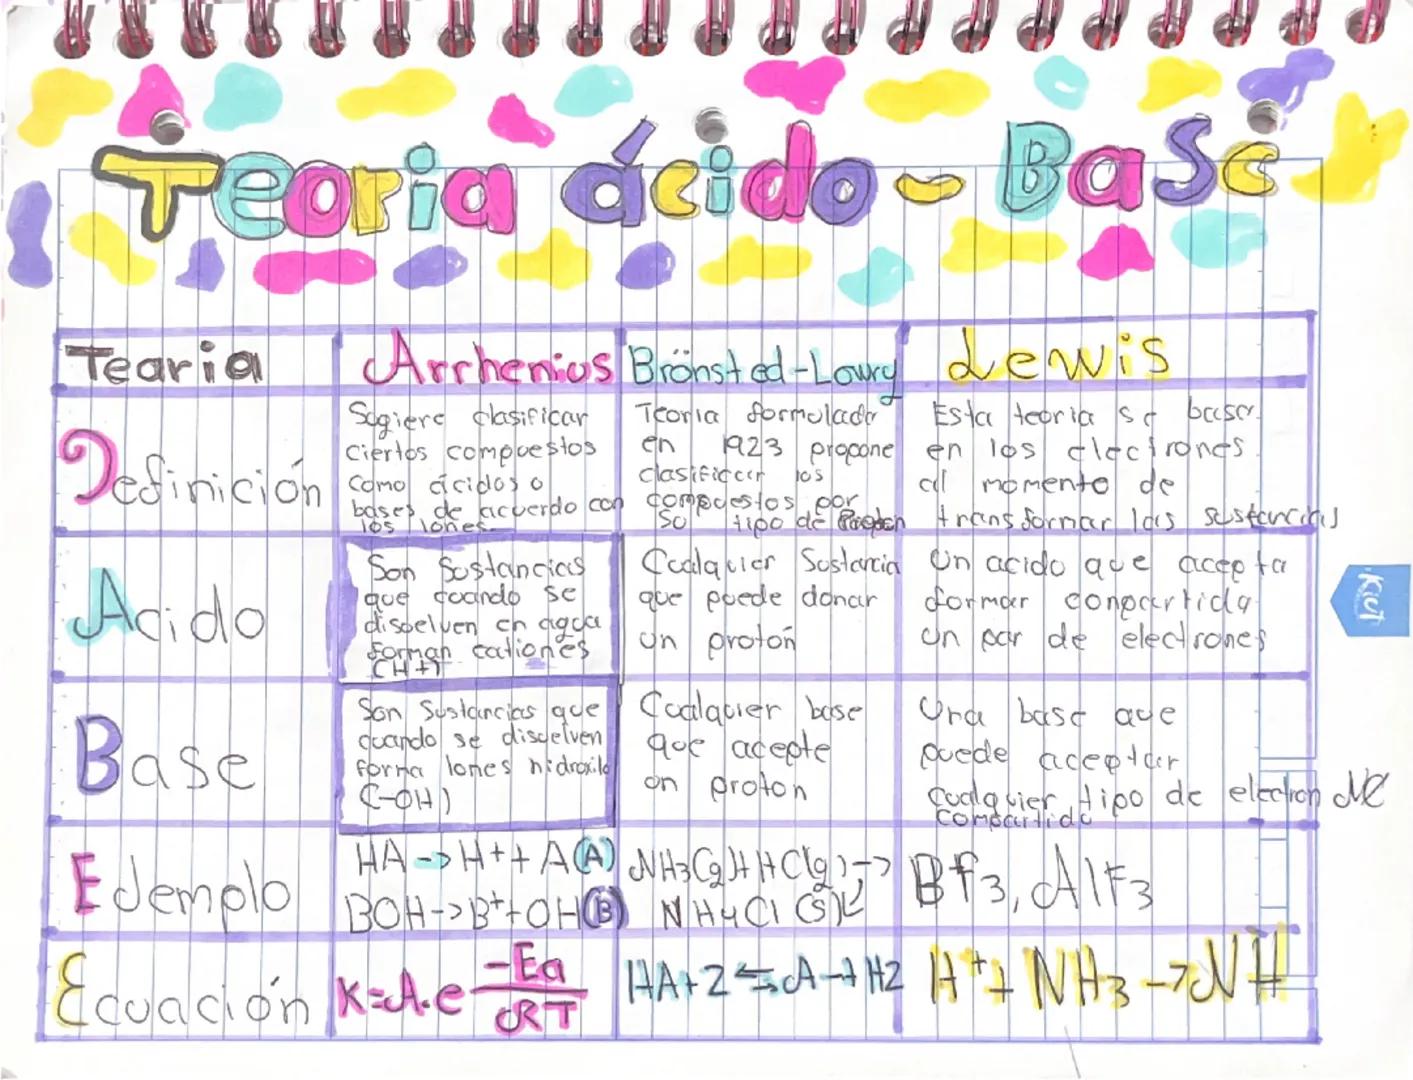 Teoria ácido - Base
Tearia
Arrhenius
Brönsted-Lowry
Lewis
Definición
Sugiere clasificar
ciertos compuestos
como ácidos o
bases de acuerdo con
los iones.
Teoria formulada
en 1923 propone
clasificar los
compuestos por
su tipo de
Esta teoria se basa
en los electrones
al momento de
transformar las sustancias
Acido
Son Sustancias
que cuando se
disuelven en agua
forman cationes
(H+)
Cualquier Sustancia
que puede donar
un protón
Un acido que acepta
formar conpartida
un par de electrones
Kiut
Base
Son Sustancias que
cuando se disuelven
forma Iones hidroxilo
(-OH)
Cualquier base
que acepte
un proton
Una base que
puede aceptar
cualquier tipo de electron NC
compartido
EJemplo
HA -> H+ + A (A)
BOH -> B+ + OH (B)
NH3(g)+HCl(g) ->
NH4Cl (s)
BF3, AlF3
Ecuación
K=A.e -Ea
RT
HA+Z ⇆ A-+HZ
H+ + NH3 -> NH